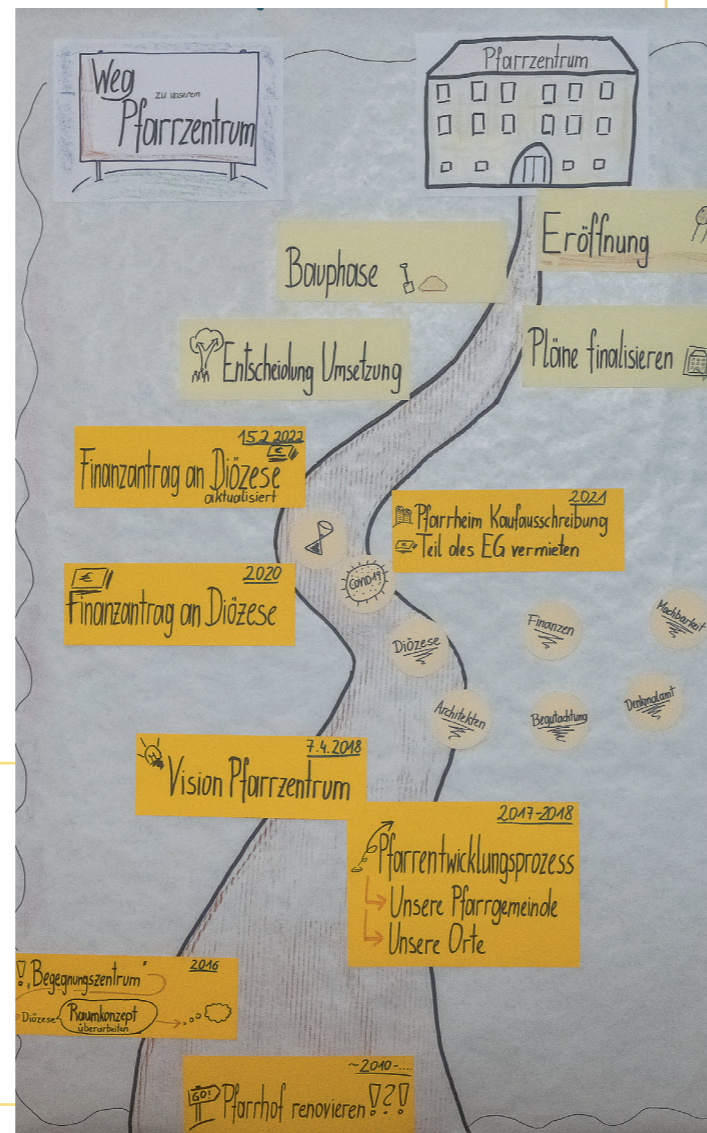 Weg
zu unserem
Pfarrzentrum
Pfarrzentrum
Eröffnung
Bauphase
Pläne finalisieren
Entscheidung Umsetzung
15.2.2022
Finanzantrag an Diözese
aktualisiert
2021
Pfarrheim Kaufausschreibung
Teil des EG vermieten
2020
Finanzantrag an Diözese
Covid19
Diözese
Finanzen
Machbarkeit
Architekten
Begutachtung
Denkmalamt
7.4.2018
Vision Pfarrzentrum
2017-2018
Pfarrentwicklungsprozess
Unsere Pfarrgemeinde
Unsere Orte
2016
! „Begegnungszentrum"
Diözese Raumkonzept
überarbeiten
~2010-....
GO! Pfarrhof renovieren !?!